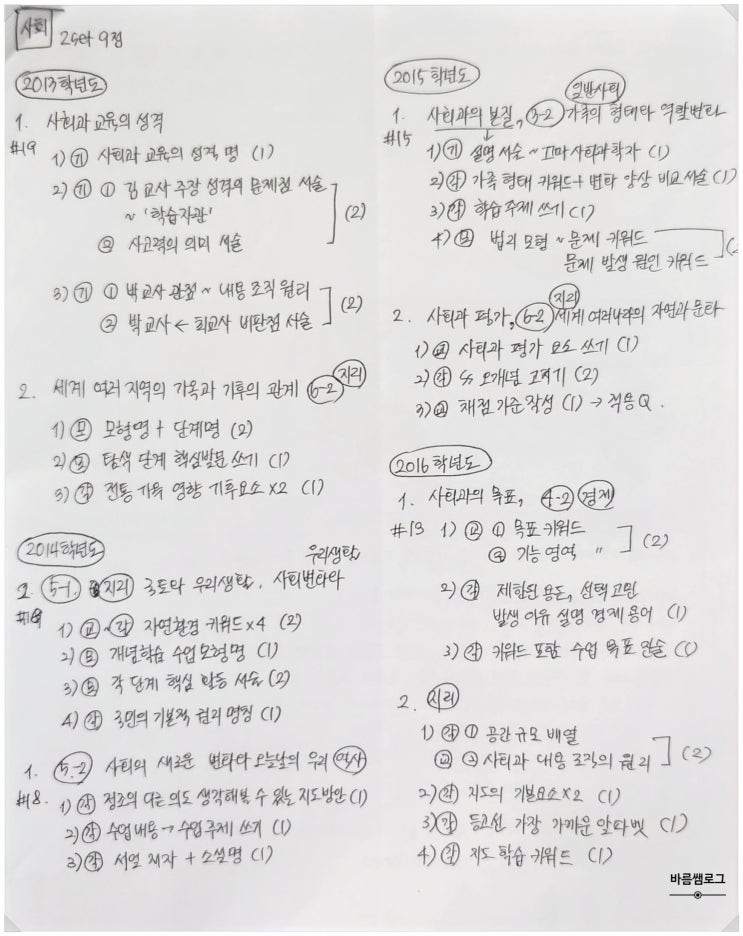 사회 2set 9점
2013학년도
1. 사회과 교육의 성격
#19
1) 기 사회과 교육의 성격 명 (1)
2) 기 ① 김교사 주장 성격의 문제점 서술
~ '학습자관'
② 사고력의 의미 서술
(2)
3) 기 ① 박교사 관점 ~ 내용 조직 원리
② 박교사 ← 최교사 비판점 서술
(2)
2. 세계 여러 지역의 가옥과 기후의 관계 6-2 지리
1) 모 모형명 + 단계명 (2)
2) 모 탐색 단계 핵심발문 쓰기 (1)
3) 각 전통 가옥 영향 기후요소 ×2 (1)
2014학년도
우리생활
2. 5-1. 지리 국토와 우리생활, 사회변화와
#19
1) 교~각 자연환경 키워드×4 (2)
2) 모 개념학습 수업모형명 (1)
3) 모 각 단계 핵심 활동 서술 (2)
4) 각 국민의 기본적 권리 명칭 (1)
1. 5-2 사회의 새로운 변화와 오늘날의 우리 역사
#18.
1) 각 정조의 다른 의도 생각해볼 수 있는 지도방안 (1)
2) 각 수업내용 → 수업주제 쓰기 (1)
3) 각 서얼 저자 + 소설명 (1)
2015학년도
일반사회
1. 사회과의 본질, 3-2 가족의 형태와 역할변화
#15
1) 기 설명 서술 ~ 꼬마사회과학자 (1)
2) 각 가족 형태 키워드 + 변화 양상 비교서술 (1)
3) 각 학습 주제 쓰기 (1)
4) 모 법리 모형 ~ 문제 키워드
문제 발생 원인 키워드
지리
2. 사회과 평가, 6-2 세계 여러나라의 자연과 문화
1) 교 사회과 평가 요소 쓰기 (1)
2) 각 〃 오개념 고치기 (2)
3) 교 채점 기준 작성 (1) → 적응Q.
2016학년도
1. 사회과의 목표, 4-2 경제
#13
1) 교 ① 목표 키워드
② 기능 영역 〃
(2)
2) 각 제한된 용돈, 선택 고민
발생 이유 설명 경제 용어 (1)
3) 각 키워드 포함 수업 목표 진술 (1)
2. 지리
1) 각 ① 공간 규모 배열
교 ② 사회과 내용 조직의 원리
(2)
2) 각 지도의 기본요소×2 (1)
3) 각 등고선 가장 가까운 알파벳 (1)
4) 각 지도 학습 키워드 (1)
바름쌤로그